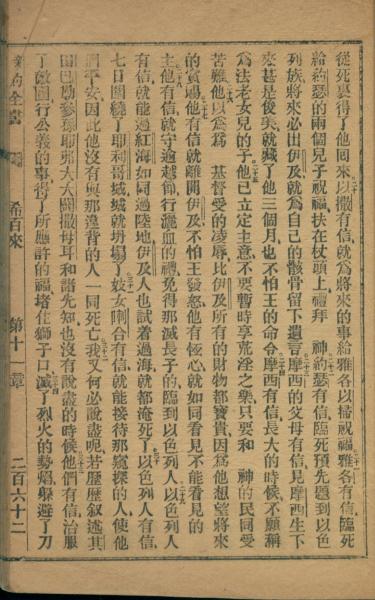 從死裏得了他回來以撒有信就爲將來的事給雅各以掃祝福雅各有信臨死
給約瑟的兩個兒子祝福扶在杖頭上禮拜 神約瑟有信臨死預先題到以色
列族將來必出伊及就爲自己的骸骨留下遺言摩西的父母有信見摩西生下
來甚是俊美就藏了他三個月也不怕王的命令摩西有信長大的時候不願稱
爲法老女兒的子他已立定主意不要暫時享荒淫之樂只要和 神的民同受
苦難他以爲爲 基督受的凌辱比伊及所有的財物都寶貴因爲他想望將來
的賞賜他有信就離開伊及不怕王發怒他有恆心就如同看見不能看見的
主他有信就守逾越節行灑血的禮免得那滅長子的臨到以色列人以色列人
有信就能過紅海如同過陸地伊及人也試着過海就都淹死了以色列人有信
七日圍繞了耶利哥城城就坍塌了妓女喇合有信就能接待那窺探的人使他
們平安因此他沒有與那違背的人一同死亡我又何必說盡呢若歷歷叙述其
田巴勒參孫耶弗大大闢撒母耳和諸先知也沒有說盡的時候他們有信治服
了敵國行公義的事得了所應許的福堵住獅子口滅了烈火的勢燄躱避了刀
新約全書 希百來 第十一章 二百六十二